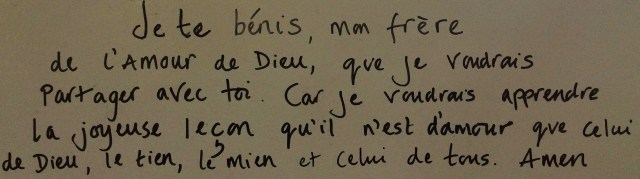 Je te bénis, mon frère
de l'Amour de Dieu, que je voudrais
Partager avec toi. Car je voudrais apprendre
la joyeuse leçon qu'il n'est d'amour que celui
de Dieu, le tien, le mien et celui de tous. Amen